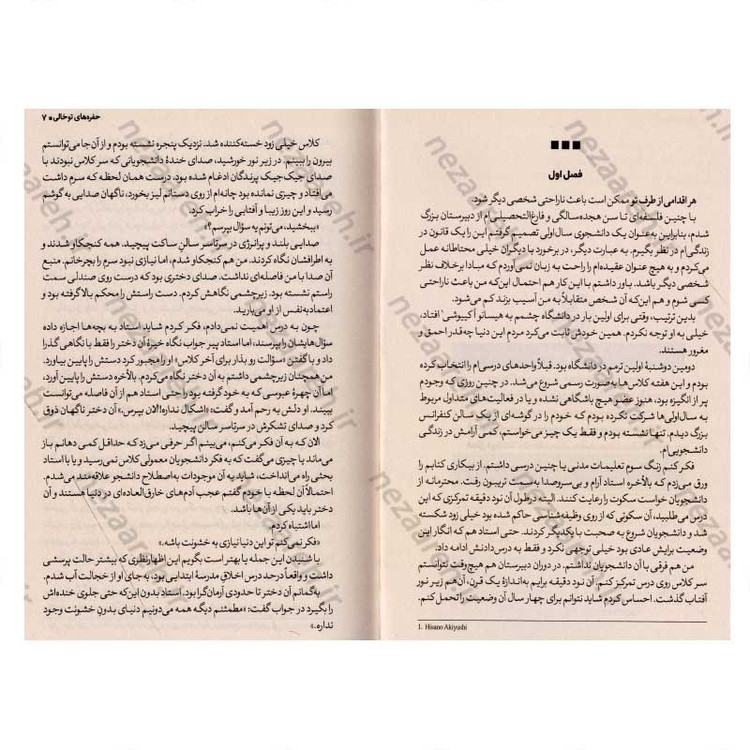 فصل اول
هر اقدامی از طرف تو ممکن است باعث ناراحتی شخصی دیگر شود.
با چنین فلسفه‌ای تا سن هجده‌سالگی و فارغ‌التحصیلی‌ام از دبیرستان بزرگ
شدم، بنابراین به‌عنوان یک دانشجوی سال‌اولی تصمیم گرفتم این را یک قانون در
زندگی‌ام در نظر بگیرم. به عبارت دیگر، در برخورد با دیگران خیلی محتاطانه عمل
می‌کردم و به هیچ عنوان عقیده‌ام را راحت به زبان نمی‌آوردم که مبادا برخلاف نظر
شخصی دیگر باشد. باور داشتم با این کار هم احتمال این‌که من باعث ناراحتی
کسی شوم و هم این‌که آن شخص متقابلاً به من آسیب بزند کم می‌شود.
بدین ترتیب، وقتی برای اولین بار در دانشگاه چشمم به هیسانو آکیوشی¹ افتاد،
خیلی به او توجه نکردم. همین خودش ثابت می‌کرد مردم این دنیا چه‌قدر احمق و
مغرور هستند.
دومین دوشنبۀ اولین ترمم در دانشگاه بود. قبلاً واحدهای درسی‌ام را انتخاب کرده
بودم و این هفته کلاس‌ها به‌صورت رسمی شروع می‌شد. در چنین روزی که وجودم
پر از انگیزه بود، هنوز عضو هیچ باشگاهی نشده و یا در فعالیت‌های متداول مربوط
به سال‌اولی‌ها شرکت نکرده بودم که خودم را در گوشه‌ای از یک سالن کنفرانس
بزرگ دیدم. تنها نشسته بودم و فقط یک چیز می‌خواستم، کمی آرامش در زندگی
دانشجویی‌ام.
فکر کنم زنگ سوم تعلیمات مدنی یا چنین درسی داشتم. از بیکاری کتابم را
ورق می‌زدم که بالأخره استاد آرام و بی‌سروصدا به سمت تریبون رفت. محترمانه از
دانشجویان خواست سکوت را رعایت کنند. البته درطول آن نود دقیقه تمرکزی که این
درس می‌طلبید، آن سکوتی که از روی وظیفه‌شناسی حاکم شده بود خیلی زود شکسته
شد و دانشجویان شروع به صحبت با یکدیگر کردند. حتی استاد هم که انگار این
وضعیت برایش عادی بود خیلی توجهی نکرد و فقط به درس‌دادنش ادامه داد.
من هم فرقی با آن دانشجویان نداشتم. در دوران دبیرستان هم هیچ‌وقت نتوانستم
سر کلاس روی درس تمرکز کنم. آن نود دقیقه برایم به‌اندازۀ یک قرن، آن‌هم زیر نور
آفتاب گذشت. احساس کردم شاید نتوانم برای چهار سال آن وضعیت را تحمل کنم.
1. Hisano Akiyushi
حفره‌های توخالی ■ ۷
کلاس خیلی زود خسته‌کننده شد. نزدیک پنجره نشسته بودم و از آن‌جا می‌توانستم
بیرون را ببینم. در زیر نور خورشید، صدای خندۀ دانشجویانی که سر کلاس نبودند با
صدای جیک‌جیک پرندگان ادغام شده بود. درست همان لحظه که سرم داشت
می‌افتاد و چیزی نمانده بود چانه‌ام از روی دستانم لیز بخورد، ناگهان صدایی به گوشم
رسید و این روز زیبا و آفتابی را خراب کرد.
«ببخشید، می‌تونم یه سؤال بپرسم؟»
صدایی بلند و پرانرژی در سرتاسر سالن ساکت پیچید. همه کنجکاو شدند و
به اطرافشان نگاه کردند. من هم کنجکاو شدم، اما نیازی نبود سرم را بچرخانم. منبع
آن صدا با من فاصله‌ای نداشت. صدای دختری بود که درست روی صندلی سمت
راستم نشسته بود. زیرچشمی نگاهش کردم. دست راستش را محکم بالا گرفته بود و
اعتمادبه‌نفس از او می‌بارید.
چون به درس اهمیت نمی‌دادم، فکر کردم شاید استاد به بچه‌ها اجازه داده
سؤال‌هایشان را بپرسند، اما استاد پیر جواب نگاه خیرۀ آن دختر را فقط با نگاهی گذرا
داد و با گفتن «سؤالت رو بذار برای آخر کلاس» او را مجبور کرد دستش را پایین بیاورد.
من همچنان زیرچشمی داشتم به آن دختر نگاه می‌کردم. بالأخره دستش را پایین آورد،
اما آن چهرۀ عبوسی که به خود گرفته بود را حتی استاد هم از آن فاصله می‌توانست
ببیند. او دلش به رحم آمد و گفت: «اشکال نداره! الان بپرس.» آن دختر ناگهان ذوق
کرد و صدای تشکرش در سرتاسر سالن پیچید.
الان که به آن فکر می‌کنم، می‌بینم اگر حرفی می‌زد که حداقل کمی دهانم باز
می‌ماند یا چیزی می‌گفت که به فکر دانشجویان معمولی کلاس نمی‌رسید و یا با استاد
بحثی راه می‌انداخت، شاید به آن موجودات به‌اصطلاح دانشجو علاقه‌مند می‌شدم.
احتمالاً آن لحظه با خودم گفتم عجب آدم‌های خارق‌العاده‌ای در دنیا هستند و آن
دختر باید یکی از آن‌ها باشد.
اما اشتباه کردم.
«فکر نمی‌کنم تو این دنیا نیازی به خشونت باشه.»
با شنیدن این جمله یا بهتر است بگویم این اظهارنظری که بیشتر حالت پرسشی
داشت و واقعاً در حد درس اخلاق مدرسۀ ابتدایی بود، به‌جای او از خجالت آب شدم.
به گمانم آن دختر تا حدودی آرمان‌گرا بود. استاد بدون این‌که حتی جلوی خنده‌اش
را بگیرد در جواب گفت: «مطمئنم دیگه همه می‌دونیم دنیای بدون خشونت وجود
نداره.»
nezaareh.ir